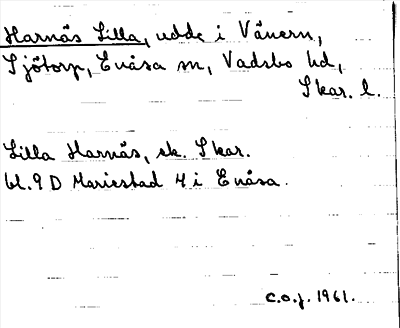 Harnäs Lilla, udde i Vänern,
Sjötorp, Enåsa sn, Vadsbo hd,
Skar. l.
Lilla Harnäs, ek. Skar.
bl. 9 D Mariestad 4 i Enåsa.
C.O.J. 1961.